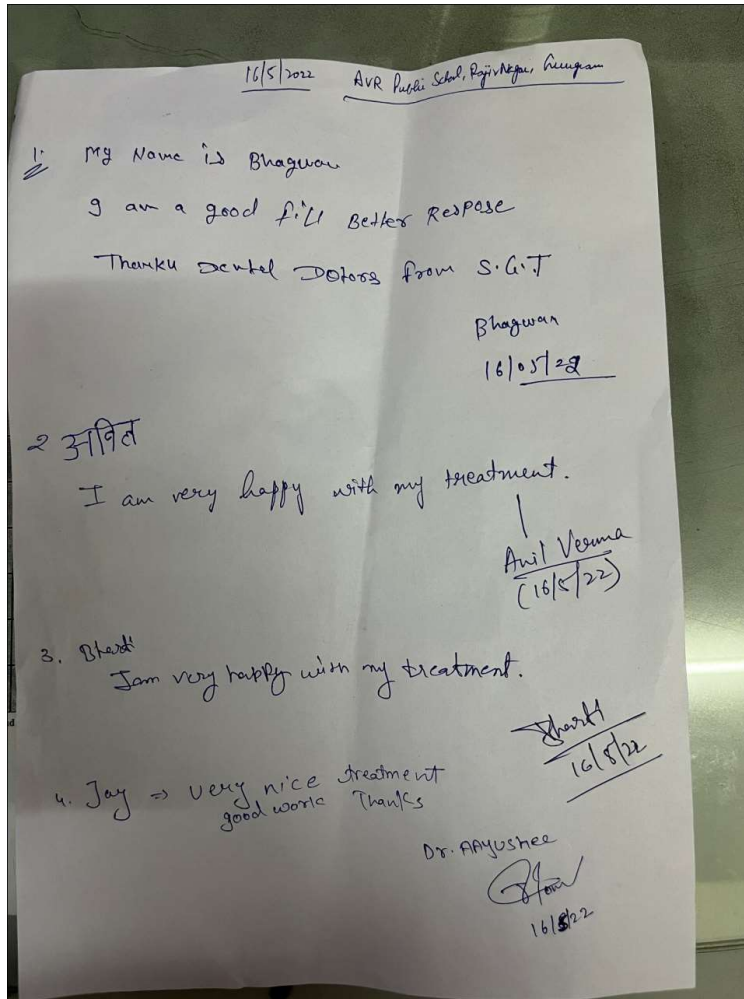 16/5/2022 AVR Public School, Rajiv Nagar, Gurugram
1. My Name is Bhagwan
I am a good fill Better Respose
Thanku Dental Dotors from S.G.T
Bhagwan
16/05/22
२ अनिल
I am very happy with my treatment.
Anil Verma
(16/5/22)
3. Bharti
I am very happy with my treatment.
Bharti
16/5/22
4. Jay ⇒ very nice treatment
good work Thanks
Dr. AAyushee
16/5/22